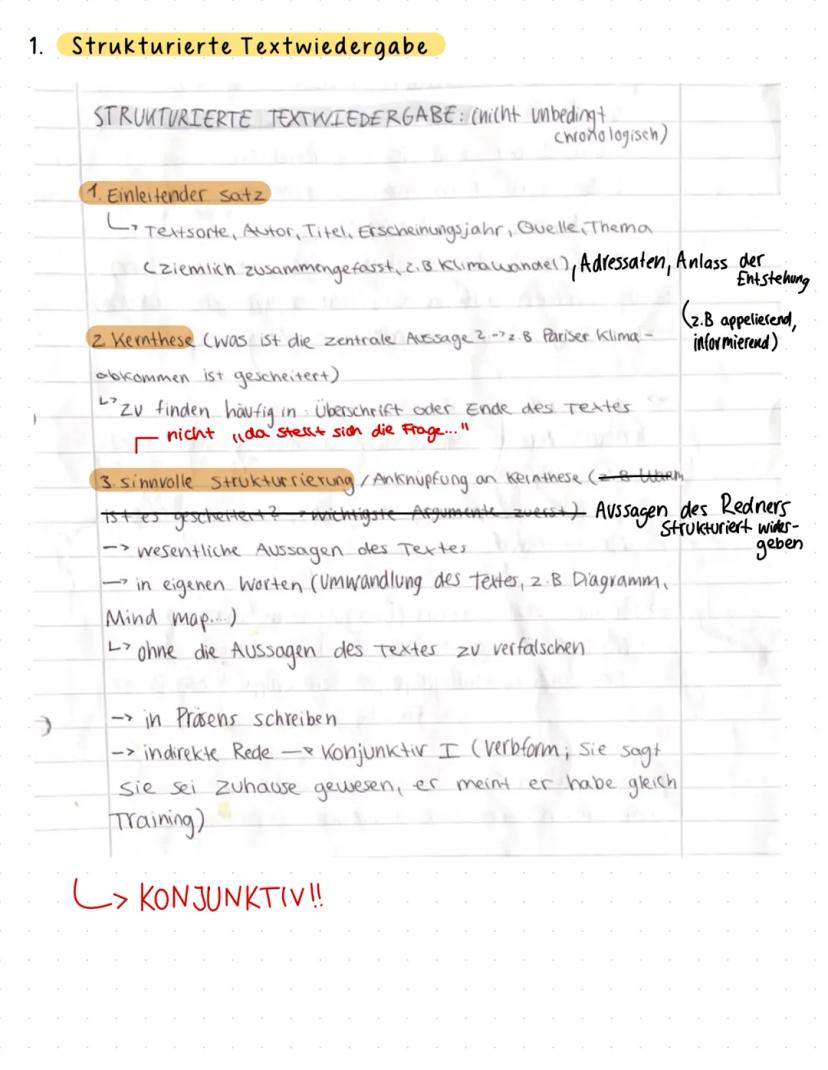 1. Strukturierte Textwiedergabe
STRUKTURIERTE TEXTWIEDERGABE: (nicht unbedingt
chronologisch)
1. Einleitender Satz
↳ Textsorte, Autor, Titel, Erscheinungsjahr, Quelle, Thema
(ziemlich zusammengefasst, z.B Klimawandel), Adressaten, Anlass der
Entstehung
(z.B appelierend,
informierend)
2 Kernthese (was ist die zentrale Aussage? -> z.B Pariser Klima-
abkommen ist gescheitert)
↳ zu finden häufig in Überschrift oder Ende des Textes
nicht "da stellt sich die Frage..."
3. sinnvolle Strukturrierung / Anknüpfung an Kernthese (z.B Warum
ist es gescheitert? wichtigste Argumente zuerst) Aussagen des Redners
Strukturiert wider-
geben
-> wesentliche Aussagen des Textes
-> in eigenen Worten (Umwandlung des Textes, z.B Diagramm,
Mind map....)
↳ ohne die Aussagen des Textes zu verfälschen
-> in Präsens schreiben
-> indirekte Rede -> Konjunktiv I (Verbform; Sie sagt
sie sei Zuhause gewesen, er meint er habe gleich
Training)
↳ KONJUNKTIV!!